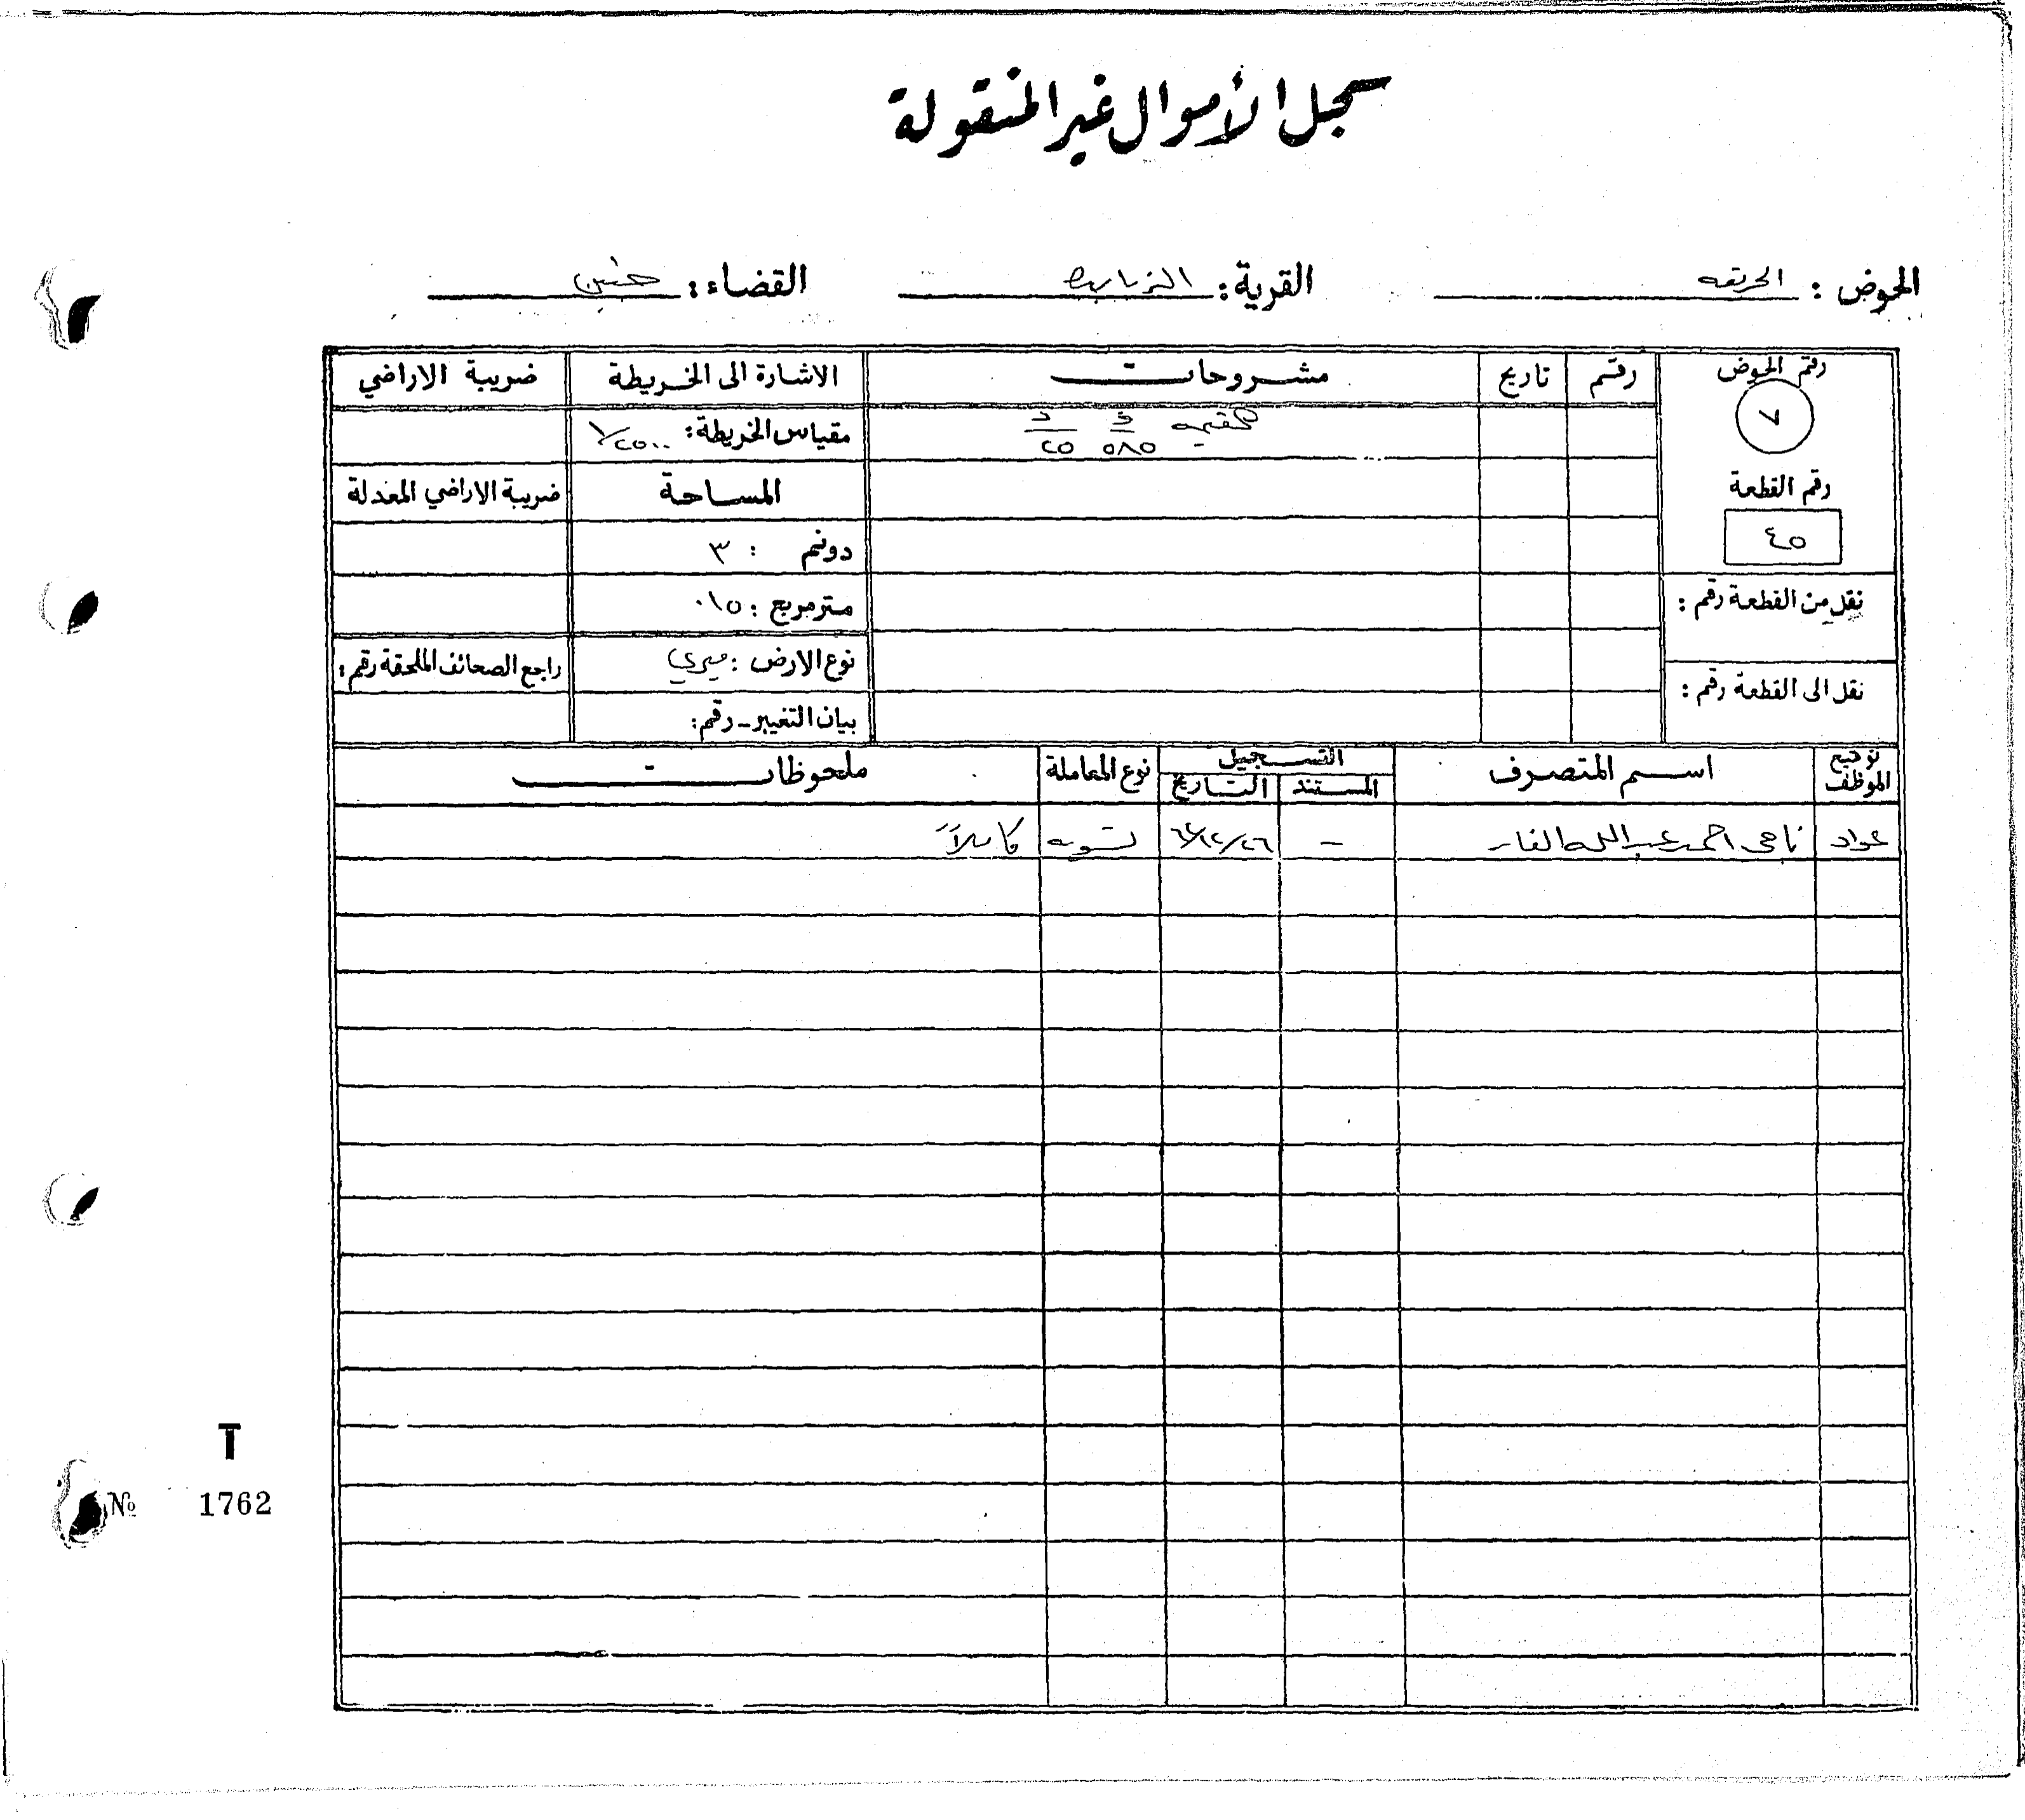 سجل الأموال غير المنقولة
الحوض : الحريقه القرية : الزبابده القضاء : جنين
رقم الحوض رقم تاريخ مشروحات الاشارة الى الخريطة ضريبة الاراضي
٧ القيمه ف ٥٨٥ د ٢٥ مقياس الخريطة : ١/٢٥٠٠
رقم القطعة المساحة ضريبة الاراضي المعدلة
٤٥ دونم : ٣
نقل من القطعة رقم : متر مربع : ٠١٥
نوع الارض : ميري راجع الصحائف الملحقة رقم :
نقل الى القطعة رقم :
بيان التغيير - رقم :
توقيع الموظف اسم المتصرف التسجيل نوع المعاملة ملحوظات
المستند التاريخ
عواد ناجي احمد عبدالله الفار - ٦٤/١٢/٢٦ تسويه كاملاً
T
№ 1762